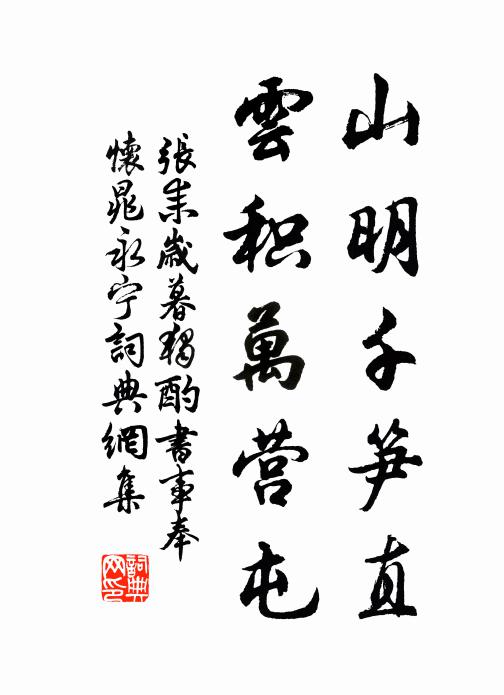 山明千笋直
雲积萬营屯
張耒歲暮独酌書事奉
懷晁永宁詞典網集
詞典
网印